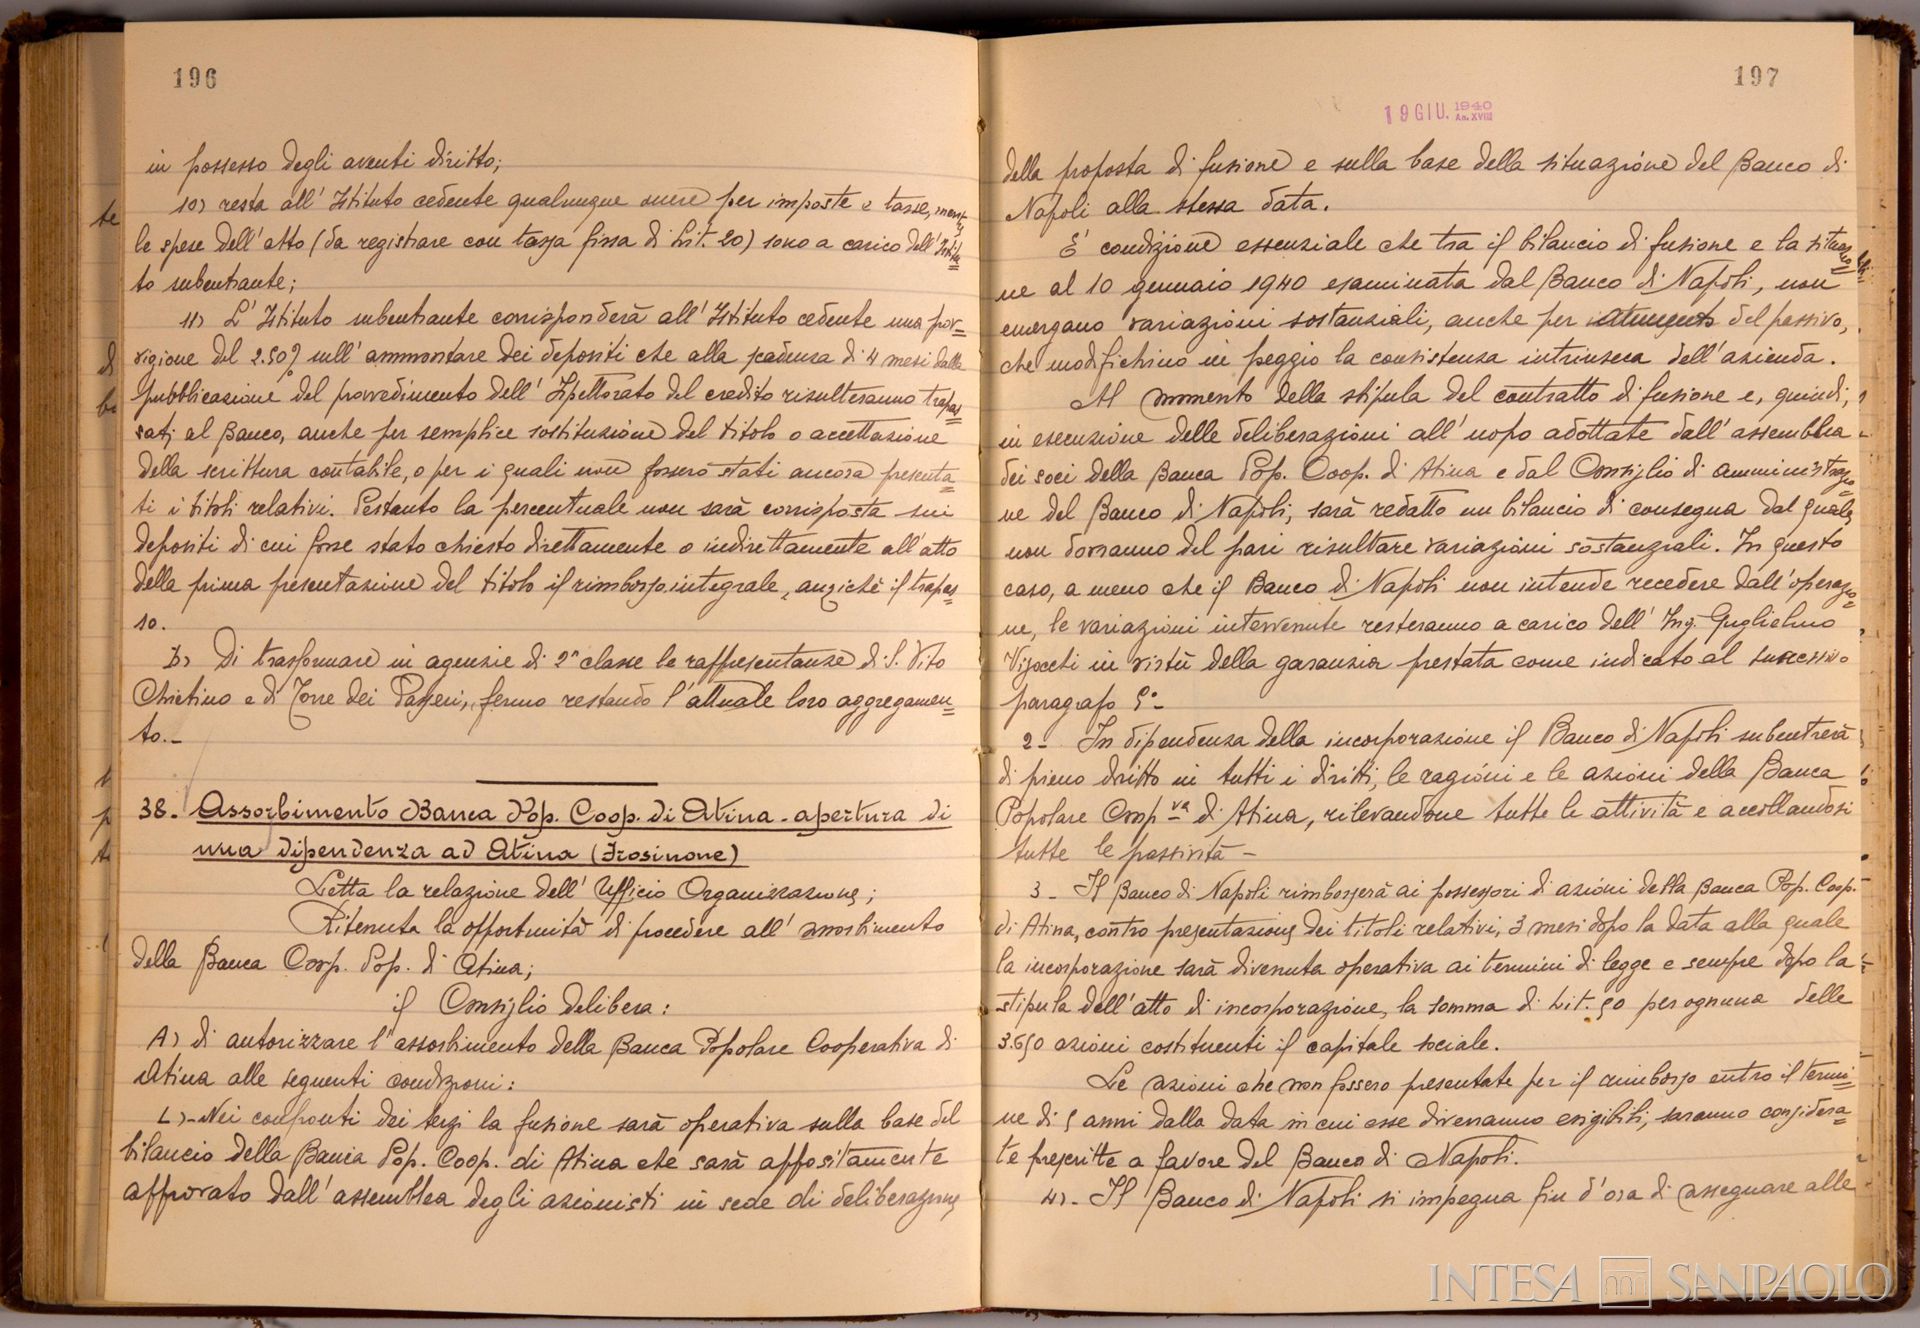 196
in possesso degli aventi diritto;
10) resta all'Istituto cedente qualunque onere per imposte e tasse, men=
le spese dell'atto (da registrare con tassa fissa di Lit. 20) sono a carico dell'Istitu=
to subentrante;
11) L'Istituto subentrante corrisponderà all'Istituto cedente una prov=
vigione del 2.50% sull'ammontare dei depositi che alla scadenza di 4 mesi dalla
pubblicazione del provvedimento dell'Ispettorato del credito risulteranno trapas=
sati al Banco, anche per semplice sostituzione del titolo o accettazione
della scrittura contabile, o per i quali non fossero stati ancora presenta=
ti i titoli relativi. Pertanto la percentuale non sarà corrisposta sui
depositi di cui fosse stato chiesto direttamente o indirettamente all'atto
della prima presentazione del titolo il rimborso integrale, anzichè il trapas=
so.
D) Di trasformare in agenzie di 2ª classe le rappresentanze di S. Vito
Chietino e di Torre dei Passeri, fermo restando l'attuale loro aggregamen=
to.-
38- Assorbimento Banca Pop. Coop. di Atina - apertura di
una dipendenza ad Atina (Frosinone)
Letta la relazione dell'Ufficio Organizzazione;
Ritenuta la opportunità di procedere all'assorbimento
della Banca Coop. Pop. di Atina;
il Consiglio delibera:
A) di autorizzare l'assorbimento della Banca Popolare Cooperativa di
Atina alle seguenti condizioni:
1)- Nei confronti dei terzi la fusione sarà operativa sulla base del
bilancio della Banca Pop. Coop. di Atina che sarà appositamente
approvato dall'assemblea degli azionisti in sede di deliberazione
197
19 GIU. 1940
An. XVIII
della proposta di fusione e sulla base della situazione del Banco di
Napoli alla stessa data.
E' condizione essenziale che tra il bilancio di fusione e la situazio=
ne al 10 gennaio 1940 esaminata dal Banco di Napoli, non
emergano variazioni sostanziali, anche per del passivo,
che modifichino in peggio la consistenza intrinseca dell'azienda.
Al momento della stipula del contratto di fusione e, quindi,
in esecuzione delle deliberazioni all'uopo adottate dall'assemblea
dei soci della Banca Pop. Coop. di Atina e dal Consiglio di amministrazio=
ne del Banco di Napoli, sarà redatto un bilancio di consegna dal quale
non dovranno del pari risultare variazioni sostanziali. In questo
caso, a meno che il Banco di Napoli non intende recedere dall'operazio=
ne, le variazioni intervenute resteranno a carico dell'Ing. Guglielmo
Visocchi in virtù della garanzia prestata come indicato al successivo
paragrafo 5°-
2- In dipendenza della incorporazione il Banco di Napoli subentrerà
di pieno diritto in tutti i diritti, le ragioni e le azioni della Banca
Popolare Coop.va di Atina, rilevandone tutte le attività e accollandosi
tutte le passività -
3- Il Banco di Napoli rimborserà ai possessori di azioni della Banca Pop. Coop.
di Atina, contro presentazione dei titoli relativi, 3 mesi dopo la data alla quale
la incorporazione sarà divenuta operativa ai termini di legge e sempre dopo la
stipula dell'atto di incorporazione, la somma di Lit. 50 per ognuna delle
3.650 azioni costituenti il capitale sociale.
Le azioni che non fossero presentate per il rimborso entro il termi=
ne di 5 anni dalla data in cui esse diverranno esigibili, saranno considera=
te prescritte a favore del Banco di Napoli.
4)- Il Banco di Napoli si impegna fin d'ora di assegnare alle
INTESA SANPAOLO